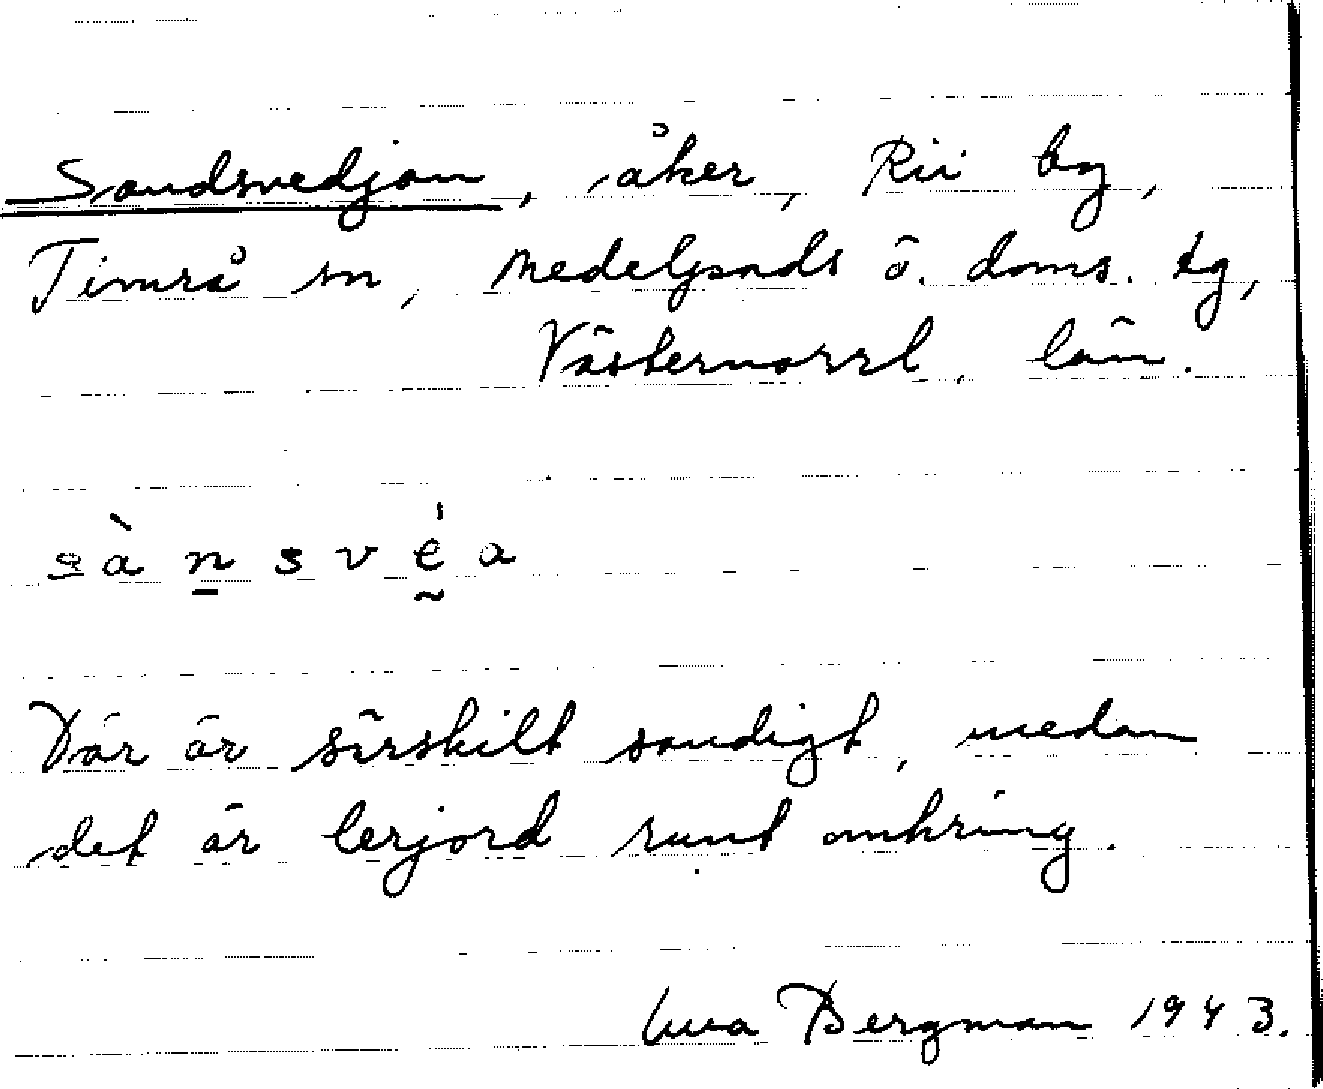 Sandsvedjan, åker, Rii by,
Timrå sn, Medelpads ö. doms. tg,
Västernorrl. län.
sànsvéa
Där är särskilt sandigt, medan
det är lerjord runt omkring.
Bergman 1943.